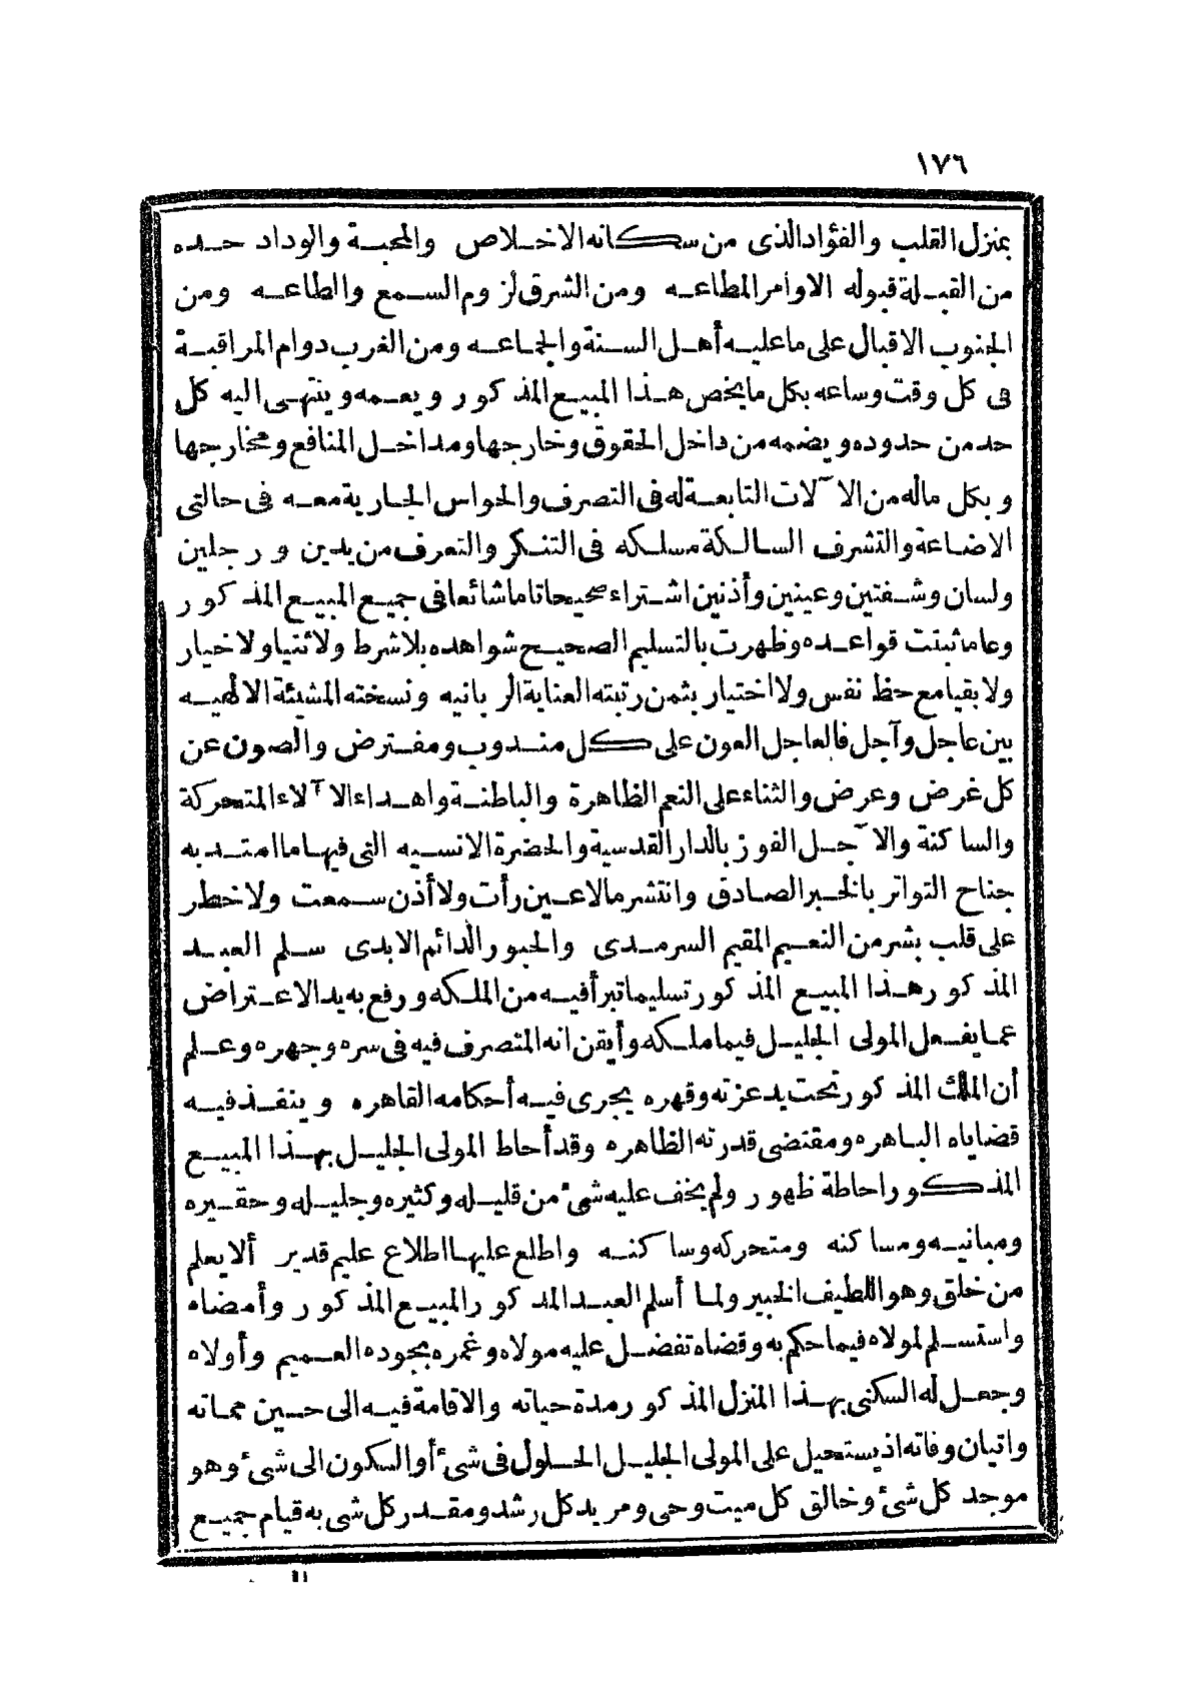 ١٧٦
بمنزل القلب والفؤاد الذى من سكانه الاخلاص والمحبة والوداد حده
من القبلة قبوله الاوامر المطاعه ومن الشرق لزوم السمع والطاعه ومن
الجنوب الاقبال على ما عليه أهل السنة والجماعه ومن الغرب دوام المراقبة
فى كل وقت وساعه بكل ما يخص هذا المبيع المذكور ويعمه وينتهى اليه كل
حد من حدوده ويضمه من داخل الحقوق وخارجها ومداخل المنافع ومخارجها
وبكل ماله من الآلات التابعة له فى التصرف والحواس الجارية معه فى حالتى
الاضاعة والتشرف السالكة مسلكه فى التنكر والتعرف من يدين ورجلين
ولسان وشفتين وعينين وأذنين اشتراء صحيحا تاما شائعا فى جميع المبيع المذكور
وعاما ثبتت قواعده وظهرت بالتسليم الصحيح شواهده بلا شرط ولا ثنيا ولا خيار
ولا بقيا مع حظ نفس ولا اختيار بثمن رتبته العناية الربانيه ونسخته المشيئة الالهيه
بين عاجل وآجل فالعاجل العون على كل مندوب ومفترض والصون عن
كل غرض وعرض والثناء على النعم الظاهرة والباطنة واهداء الآلاء المتحركة
والساكنة والآجل الفوز بالدار القدسية والحضرة الانسيه التى فيها ما امتد به
جناح التواتر بالخبر الصادق وانتشر مالا عين رأت ولا أذن سمعت ولا خطر
على قلب بشر من النعيم المقيم السرمدى والحبور الدائم الابدى سلم العبد
المذكور هذا المبيع المذكور تسليما تبرأ فيه من الملكه ورفع به يد الاعتراض
عما يفعل المولى الجليل فيما ملكه وأيقن انه المتصرف فيه فى سره وجهره وعلم
أن الملك المذكور تحت يد عزته وقهره يجرى فيه أحكامه القاهره وينفذ فيه
قضاياه الباهره ومقتضى قدرته الظاهره وقد أحاط المولى الجليل بهذا المبيع
المذكور احاطة ظهور ولم يخف عليه شئ من قليله وكثيره وجليله وحقيره
ومبانيه ومساكنه ومتحركه وساكنه واطلع عليها اطلاع عليم قدير ألا يعلم
من خلق وهو اللطيف الخبير ولما أسلم العبد المذكور المبيع المذكور وأمضاه
واستسلم لمولاه فيما حكم به وقضاه تفضل عليه مولاه وغمره بجوده العميم وأولاه
وجعل له السكنى بهذا المنزل المذكور مدة حياته والاقامة فيه الى حين مماته
واتيان وفاته اذ يستحيل على المولى الجليل الحلول فى شئ أو السكون الى شئ وهو
موجد كل شئ وخالق كل ميت وحى ومريد كل رشد ومقدر كل شى به قيام جميع